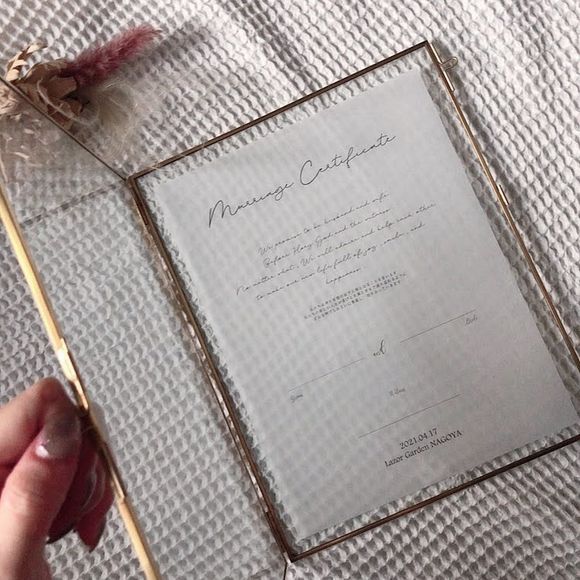 Marriage Certificate
We promise to be husband and wife
Before Hory God and the witness
No matter what, We will share and help each other
to make our new life full of joy, smiles, and
happiness
and
Groom
Bride
Witness
2021.04.17
Lazor Garden NAGOYA